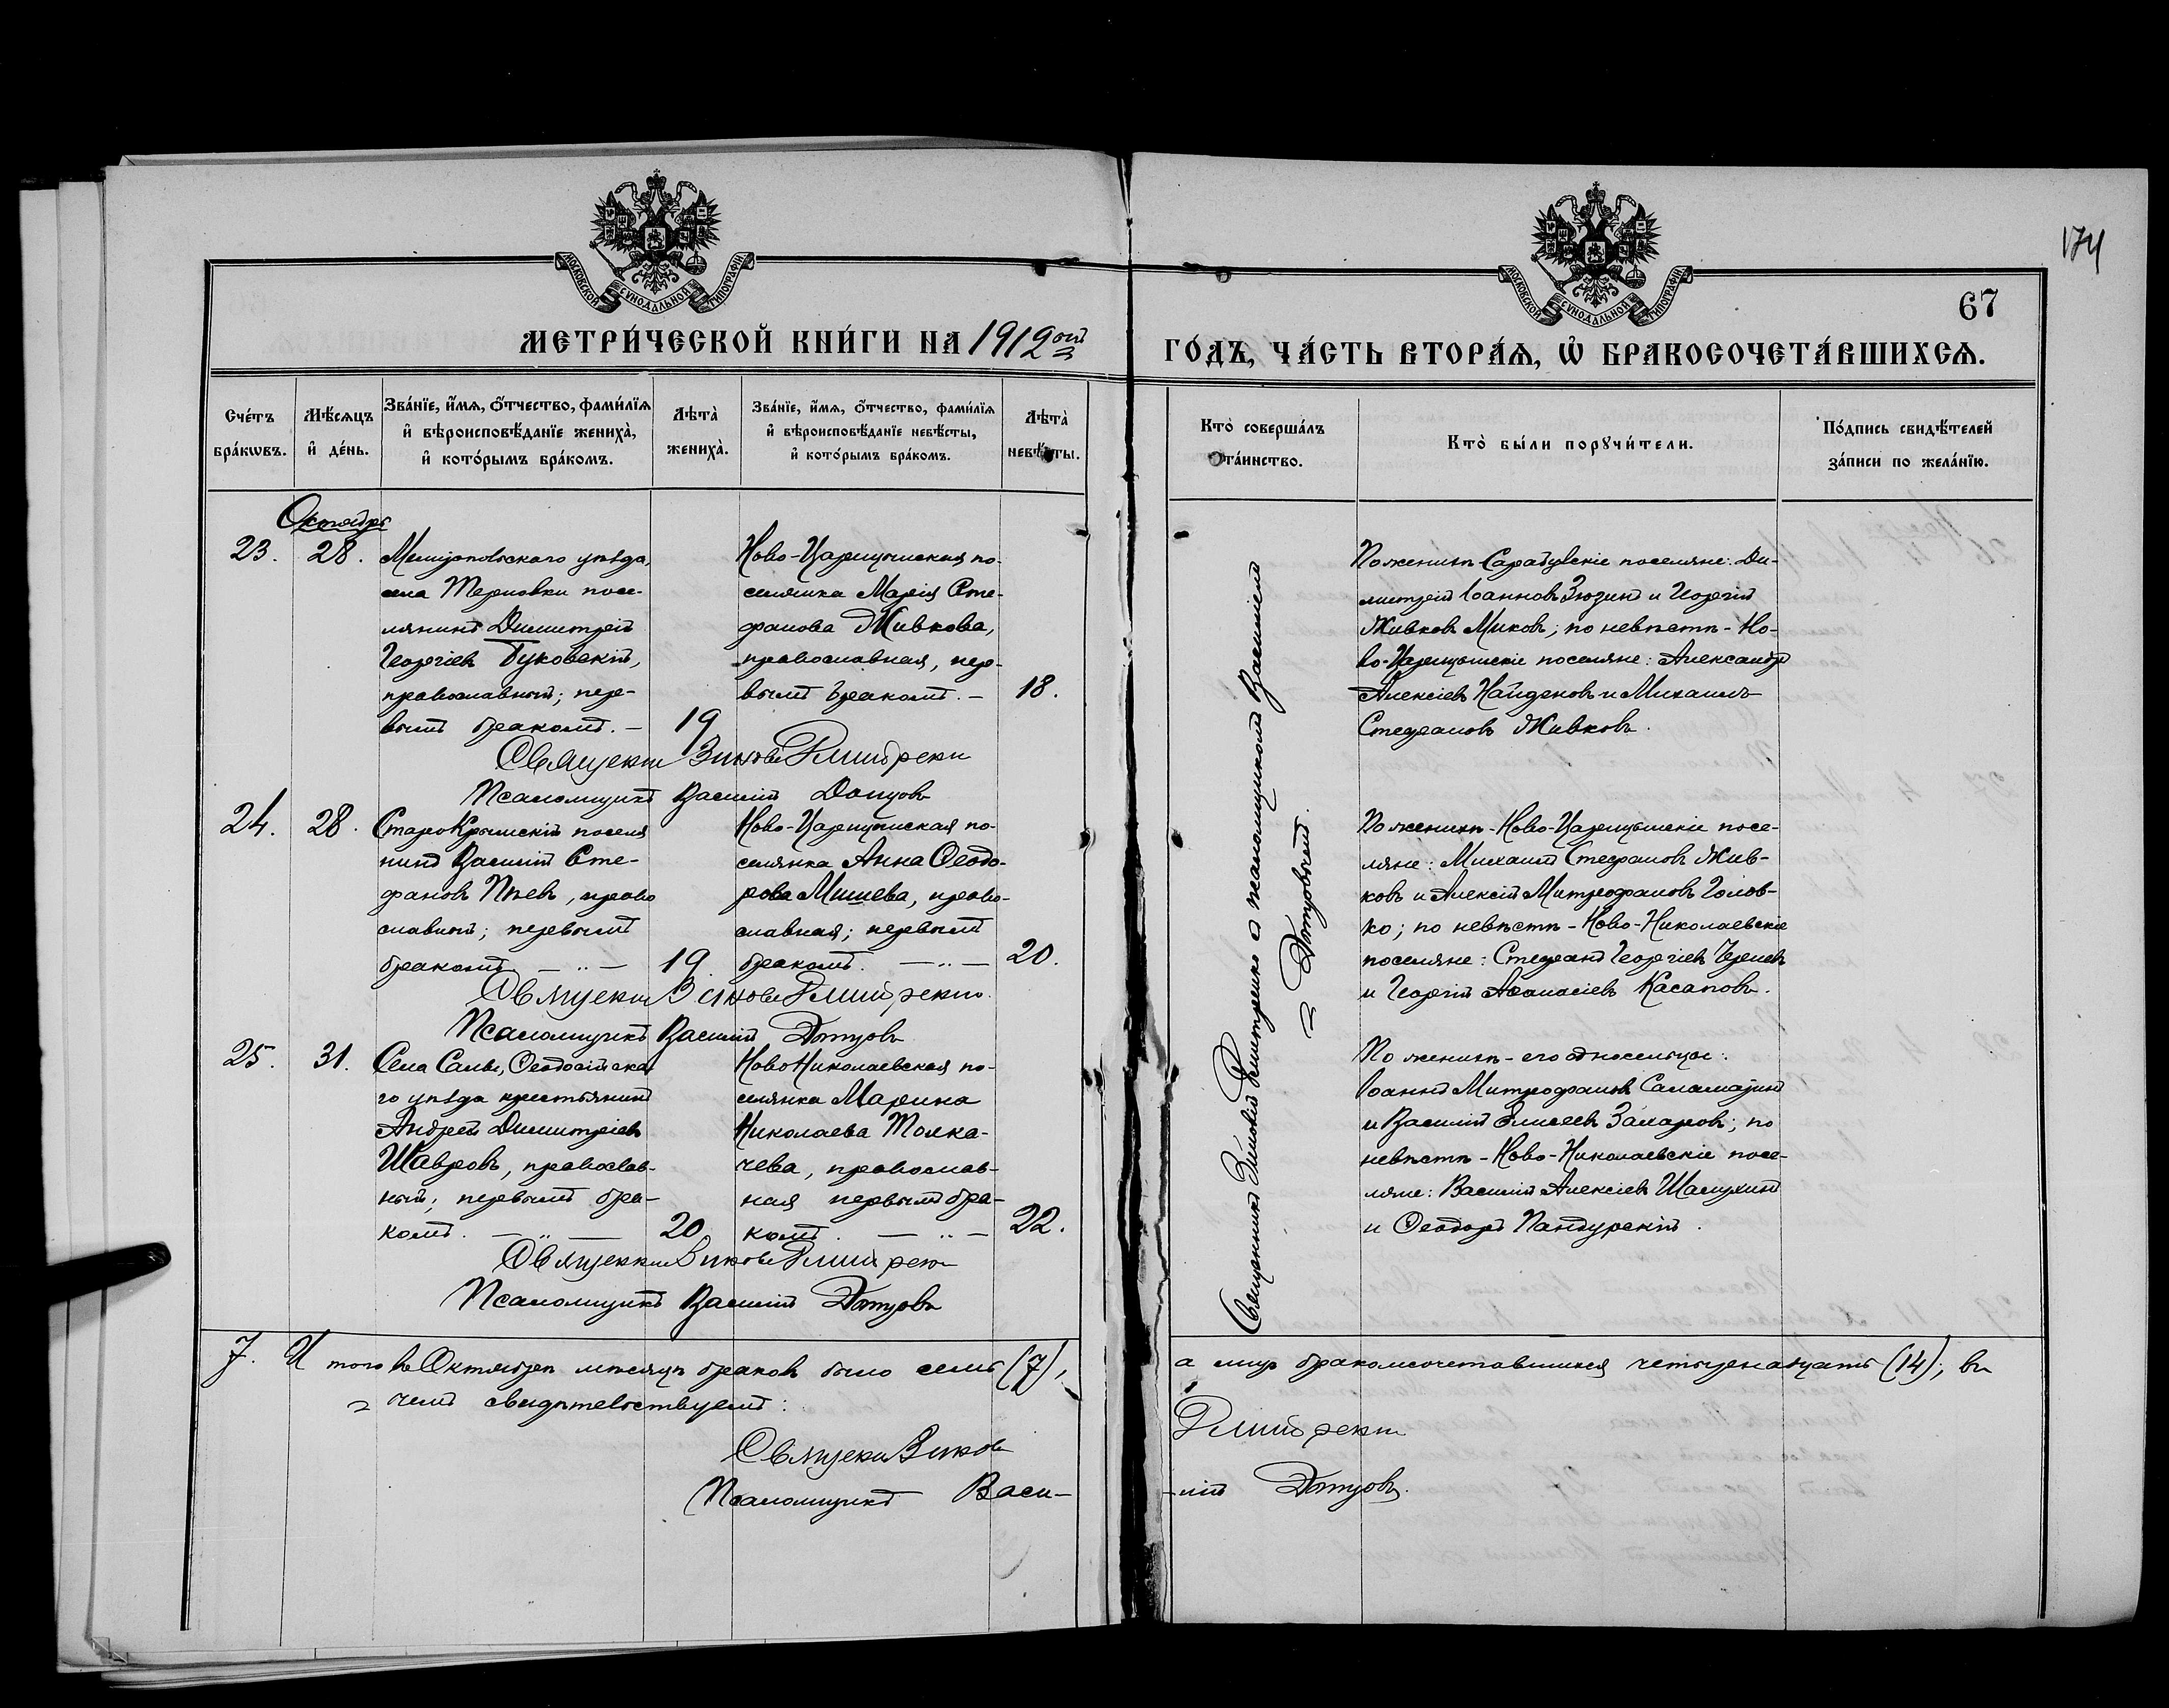 174
67
МЕТРИ́ЧЕСКОЙ КНИ́ГИ НА 1912 ой
ГО́ДЪ, ЧА́СТЬ ВТОРА́Я, Ѡ҆ БРАКОСОЧЕТА́ВШИХСѦ.
МОСКОВСКОЙ СѴНОДАЛЬНОЙ ТИПОГРАФІИ
МОСКОВСКОЙ СѴНОДАЛЬНОЙ ТИПОГРАФІИ
Сче́тъ бра́кѡвъ.
Мѣ́сѧцъ и҆ де́нь.
Зва́нїе, и҆́мѧ, ѻ҆́тчество, фами́лїѧ
и҆ вѣроисповѣ́данїе жениха̀,
и҆ кото́рымъ бра́комъ.
Лѣта̀ жениха̀.
Зва́нїе, и҆́мѧ, ѻ҆́тчество, фами́лїѧ
и҆ вѣроисповѣ́данїе невѣ́сты,
и҆ кото́рымъ бра́комъ.
Лѣта̀ невѣ́сты.
Кто̀ соверша́лъ
та́инство.
Кто̀ бы́ли порꙋчи́тели.
По́дпись свидѣ́телей
за́писи по жела́нїю.
Октябрь
23. 28.
Мелитопольскаго уѣзда,
села Терновки посе-
лянинъ Димитрій
Георгіевъ Буковскій,
православный; пер-
вымъ бракомъ. —
19
Ново-Царицынская по-
селянка Марія Сте-
фанова Живкова,
православная, пер-
вымъ бракомъ. —
18.
По женихѣ Сарабузскіе поселяне: Ди-
митрій Іоанновъ Зюзинъ и Георгій
Живковъ Миковъ; по невѣстѣ - Но-
во-Царицынскіе поселяне: Александръ
Алексіевъ Найденовъ и Михаилъ
Стефановъ Живковъ.
Священникъ Зиновій
Псаломщикъ Василій
24. 28.
СтароКрымскій поселя
нинъ Василій Сте-
фановъ Пѣевъ, право
славный; первымъ
бракомъ. — „ —
19.
Ново-Царицынская по-
селянка Анна Ѳеодо-
рова Мишева, право-
славная; первымъ
бракомъ. — „ —
20.
По женихѣ - Ново-Царицынскіе посе-
ляне: Михаилъ Стефановъ Жив-
ковъ и Алексій Митрофановъ Голов-
ко; по невѣстѣ - Ново-Николаевскіе
поселяне: Стефанъ Георгіевъ
и Георгій Аѳанасіевъ Касаповъ.
Священникъ Зиновій
Псаломщикъ Василій
25. 31.
Села Салы, Ѳеодосійска-
го уѣзда крестьянинъ
Андрей Димитріевъ
Шавровъ, православ-
ный; первымъ бра-
комъ. — „ —
20.
НовоНиколаевская по-
селянка Марина
Николаева Толка-
чева, православ-
ная первымъ бра-
комъ. — „ —
22.
По женихѣ - его односельцы:
Іоаннъ Митрофановъ
и Василій Елисеевъ Захаровъ; по
невѣстѣ - Ново-Николаевскіе посе-
ляне: Василій Алексіевъ Шалухинъ
и Ѳеодоръ Пандурскій.
Священникъ Зиновій
Псаломщикъ Василій
Священникъ Зиновій с псаломщикомъ Василіемъ
7. И того въ Октябрѣ мѣсяцѣ браковъ было семь (7),
а лицъ бракомсочетавшихся четырнадцать (14); въ
чемъ свидѣтельствуемъ:
Священникъ Зиновій
Псаломщикъ Васи-
-лій